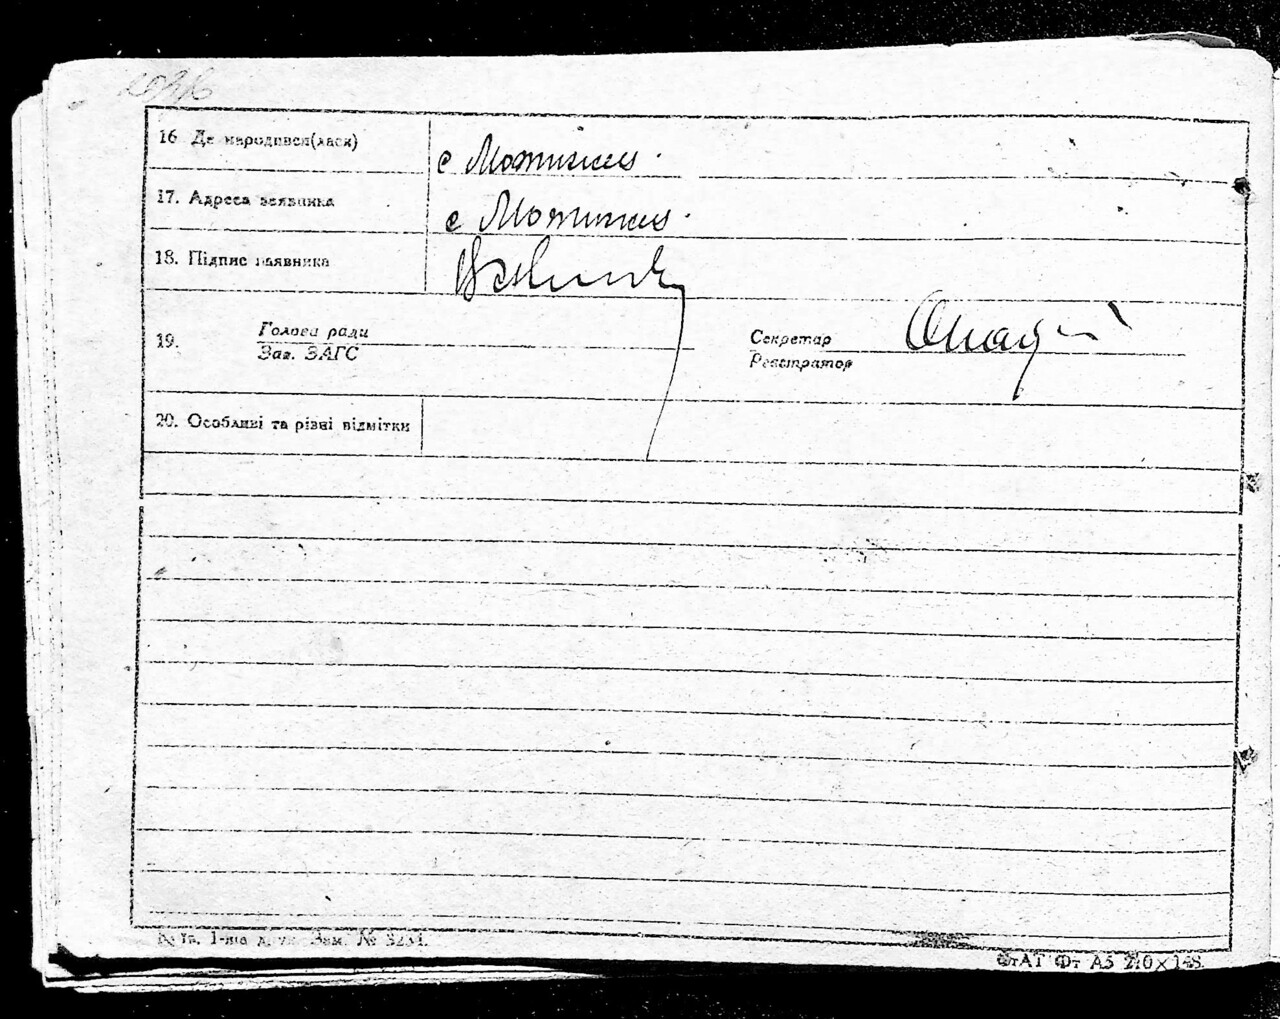 16 Де народився(лася)
с Мотижин
17. Адреса заявника
с Мотижин
18. Підпис заявника
19.
Голова ради
Зав. ЗАГС
Секретар
Реєстратор
20. Особливі та різні відмітки
Зам. № 3231.
СтАТ Фт А5 210×148